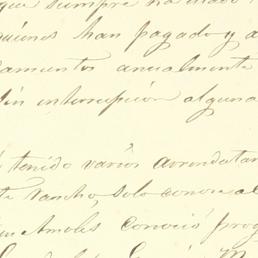 que siempre ha
quienes han pagado y a
amientos anualmente
sin interrupción alguna
tenido varios arrendatar
te rancho, solo conoce al
Amoles conoció prog